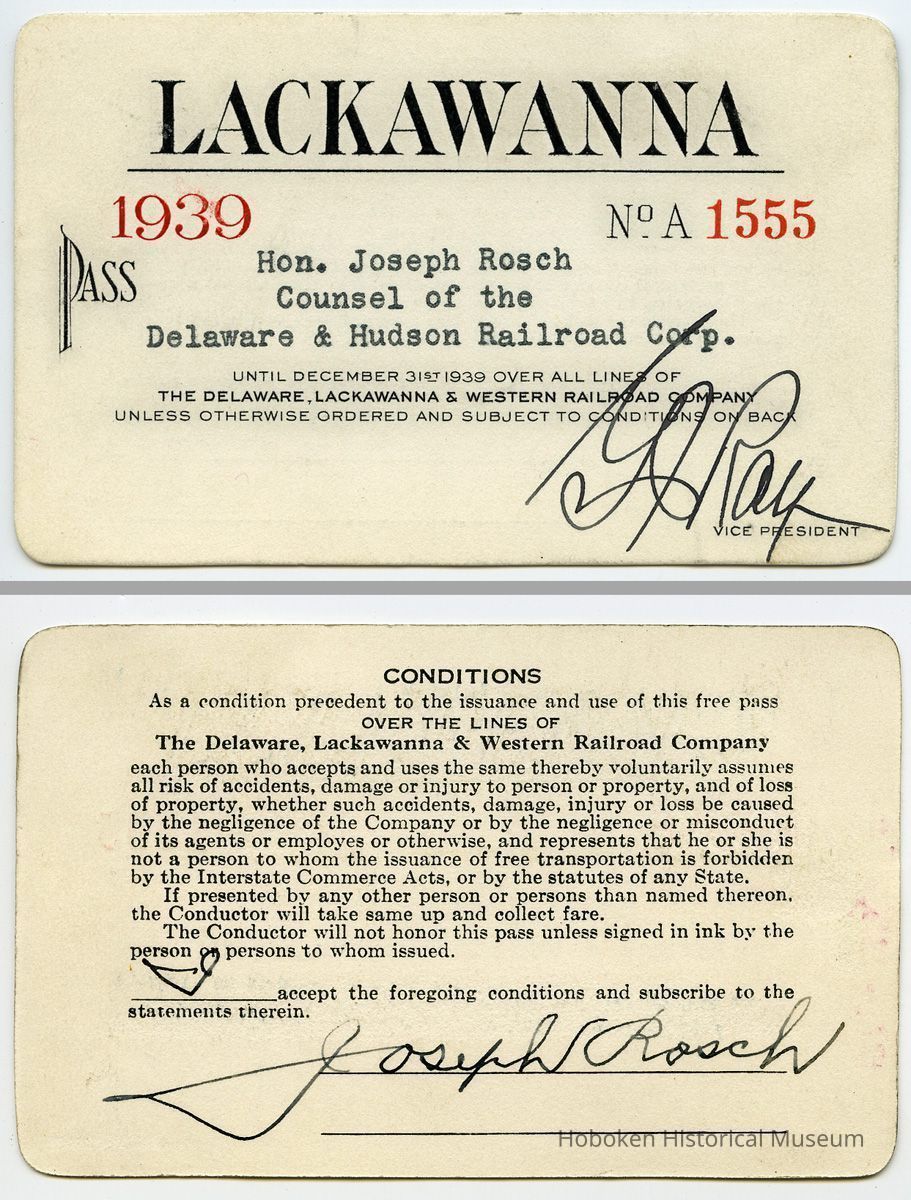 LACKAWANNA
1939
Nº A 1555
PASS
Hon. Joseph Rosch
Counsel of the
Delaware & Hudson Railroad Corp.
UNTIL DECEMBER 31ST 1939 OVER ALL LINES OF
THE DELAWARE, LACKAWANNA & WESTERN RAILROAD COMPANY
UNLESS OTHERWISE ORDERED AND SUBJECT TO CONDITIONS ON BACK
VICE PRESIDENT
CONDITIONS
As a condition precedent to the issuance and use of this free pass
OVER THE LINES OF
The Delaware, Lackawanna & Western Railroad Company
each person who accepts and uses the same thereby voluntarily assumes
all risk of accidents, damage or injury to person or property, and of loss
of property, whether such accidents, damage, injury or loss be caused
by the negligence of the Company or by the negligence or misconduct
of its agents or employes or otherwise, and represents that he or she is
not a person to whom the issuance of free transportation is forbidden
by the Interstate Commerce Acts, or by the statutes of any State.
If presented by any other person or persons than named thereon,
the Conductor will take same up and collect fare.
The Conductor will not honor this pass unless signed in ink by the
person or persons to whom issued.
I accept the foregoing conditions and subscribe to the
statements therein.
Joseph Rosch
Hoboken Historical Museum